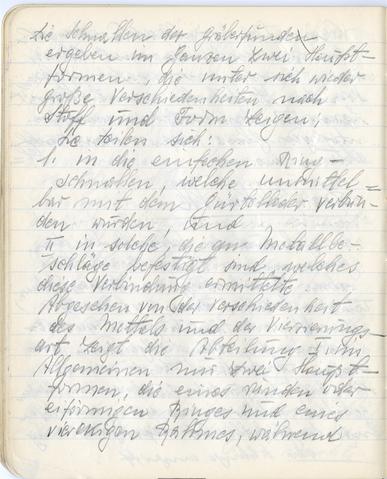 Die Schnallen der Gräberfunden
ergeben im Ganzen zwei Haupt-
formen, die unter sich wieder
große Verschiedenheiten nach
Stoff und Form zeigen;
Sie teilen sich:
I. in die einfachen Ring-
schnallen, welche unmittel=
bar mit dem Gürtelleder verbun-
den wurden, und
II in solche, die an Metallbe-
schläge befestigt sind, welches
diese Verbindung ermittelte
Abgesehen von der Verschiedenheit
des Mettals und der Verzierungs-
art zeigt die Abteilung I im
Allgemeinen nur zwei Haupt-
formen, die eines runden oder
eiförmigen Ringes und eines
viereckigen Rahmes, während